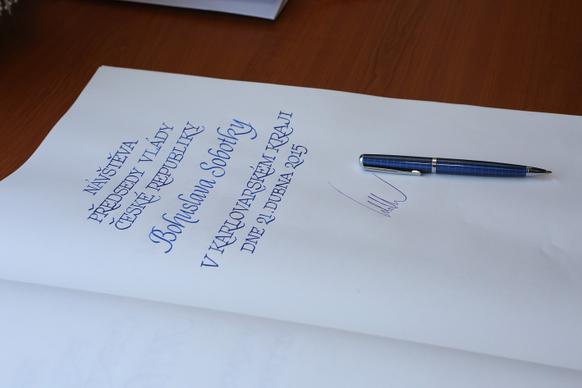 NÁVŠTĚVA
PŘEDSEDY VLÁDY
ČESKÉ REPUBLIKY
Bohuslava Sobotky
V KARLOVARSKÉM KRAJI
DNE 21. DUBNA 2015